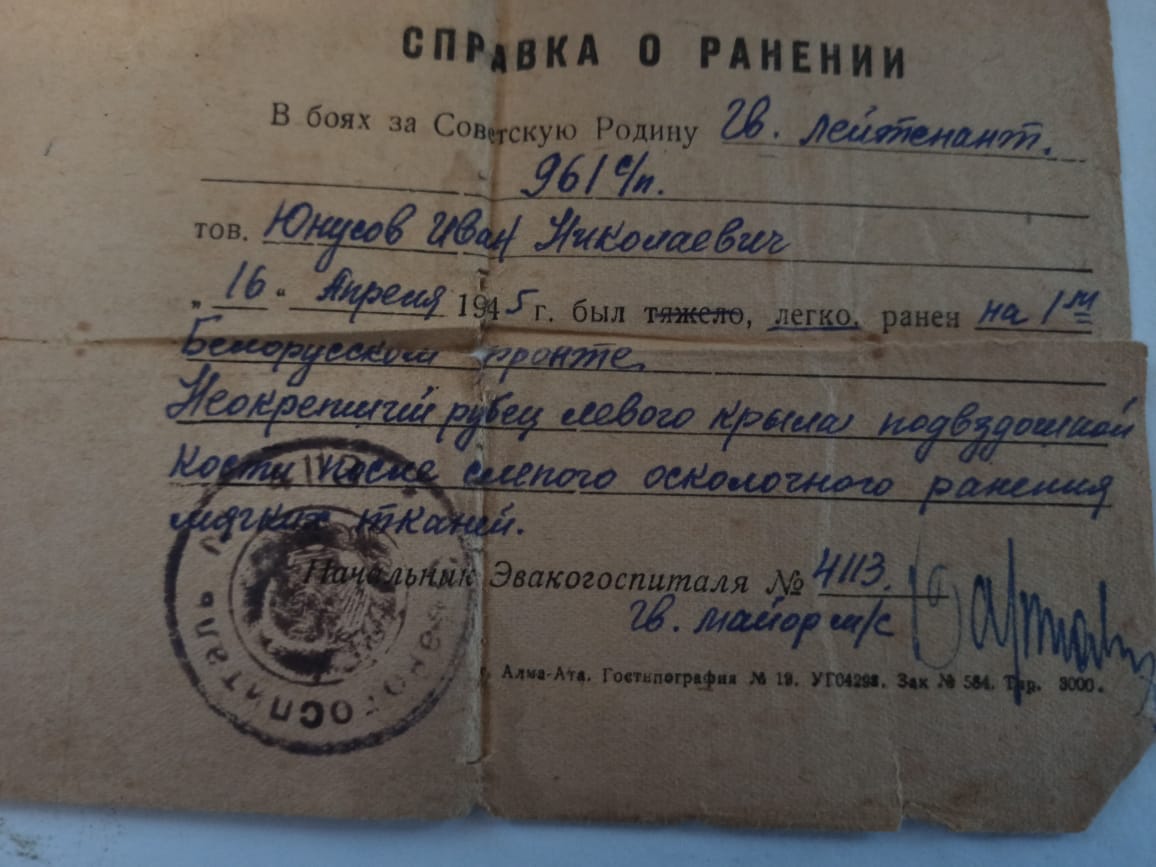 СПРАВКА О РАНЕНИИ
В боях за Советскую Родину Гв. лейтенант.
961 с/п.
тов. Юнусов Иван Николаевич
„16“ Апреля 1945 г. был тяжело, легко, ранен на 1м
Белорусском фронте
Неокрепший рубец левого крыла подвздошной
кости после слепого осколочного ранения
мягких тканей.
Начальник Эвакогоспиталя № 4113.
Гв. майор м/с
г. Алма-Ата. Гостипография № 19. УГ04298. Зак № 584. Тир. 3000.